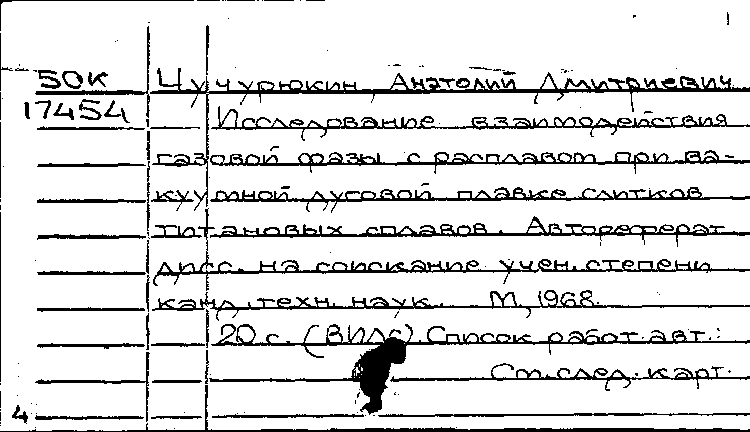 1
50К Цучурюкин, Анатолий Дмитриевич
17454 Исследование взаимодействия
газовой фазы с расплавом при ва-
куумной дуговой плавке слитков
титановых сплавов. Автореферат
дисс. на соискание учен. степени
канд. техн. наук. М, 1968.
20 с. (ВИЛС). Список работ авт.:
См. след. карт.
4